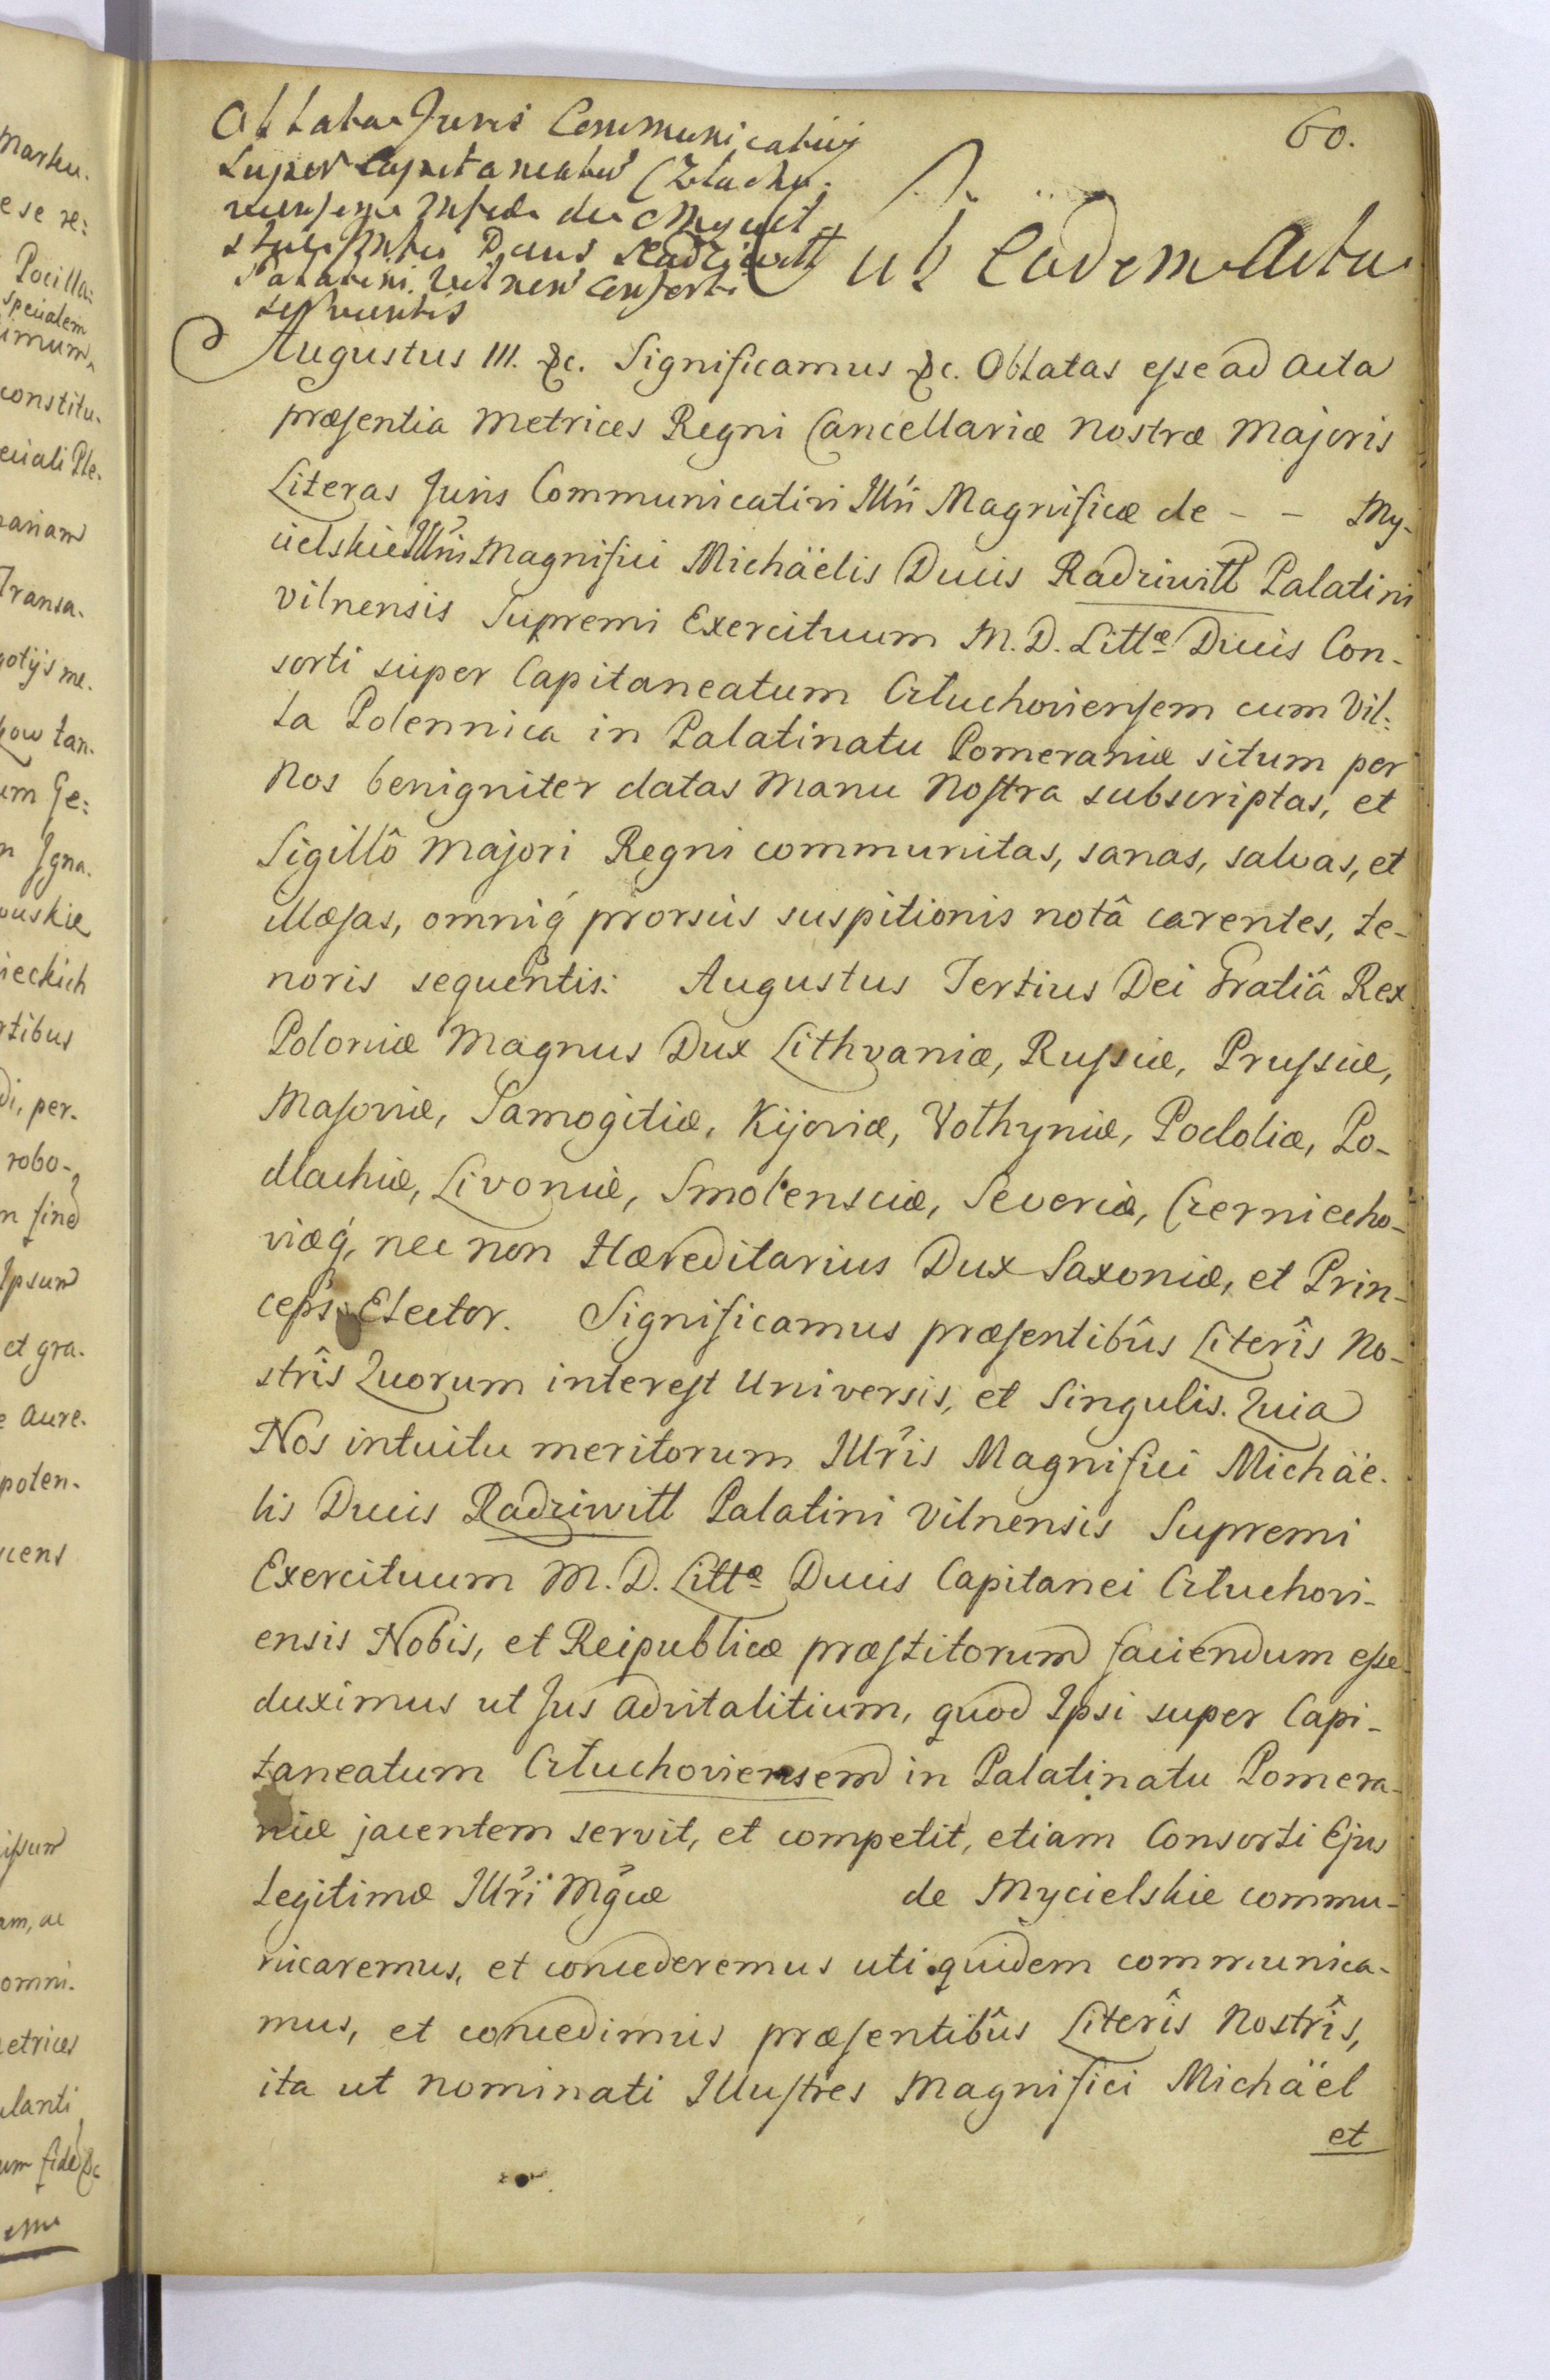 60.
Oblata Juris Communicativi
super Capitaneatu Człucho-
viensi Mgfcae de Myciel-
skie Ducis Radziwiłł
Palatini Vilnen Consorti
servientis
Sub Eadem Actu
Augustus III. &c. Significamus &c. Oblatas esse ad Acta
præsentia Metrices Regni Cancellariæ Nostræ Majoris
Literas Juris Communicativi Illri Magnificæ de - - My-
cielskie Illris Magnifici Michäelis Ducis Radziwiłł Palatini
Vilnensis Supremi Exercituum M. D. Littæ Ducis Con-
sorti super Capitaneatum Człuchoviensem cum Vil-
la Polennica in Palatinatu Pomeraniæ situm per
Nos benigniter datas Manu Nostra subscriptas, et
Sigillô Majori Regni communitas, sanas, salvas, et
illæsas, omniq́ prorsus suspitionis notâ carentes, te-
noris sequentis: Augustus Tertius Dei Gratiâ Rex
Poloniæ Magnus Dux Lithvaniæ, Russiæ, Prussiæ,
Masoviæ, Samogitiæ, Kijoviæ, Volhyniæ, Podoliæ, Po-
dlachiæ, Livoniæ, Smolensciæ, Severiæ, Czerniecho-
viæq́, nec non Hæreditarius Dux Saxoniæ, et Prin-
ceps Elector. Significamus præsentibûs Literîs No-
strîs Quorum interest Universis, et Singulis. Quia
Nos intuitu meritorum Illris Magnifici Michäe-
lis Ducis Radziwiłł Palatini Vilnensis Supremi
Exercituum M. D. Littæ Ducis Capitanei Człuchovi-
ensis Nobis, et Reipublicæ præstitorum faciendum esse
duximus ut Jus advitalitium, quod Ipsi super Capi-
taneatum Człuchoviensem in Palatinatu Pomera-
niæ jacentem servit, et competit, etiam Consorti Ejus
Legitimæ Illri Mgcæ de Mycielskie commu-
nicaremus, et concederemus uti quidem communica-
mus, et concedimus præsentibûs Literîs Nostrîs,
ita ut nominati Illustres Magnifici Michäel
et